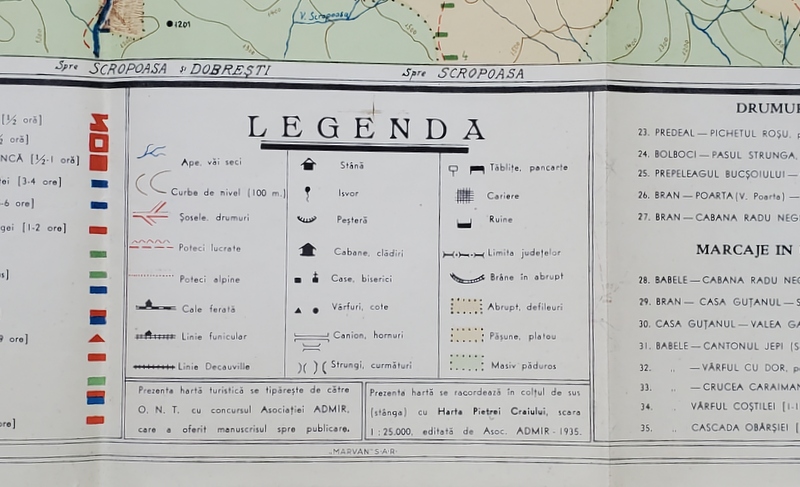 1201
V. Scropoasa
Spre SCROPOASA și DOBREȘTI
Spre SCROPOASA
[½ oră]
oră]
NCĂ [½-1 oră]
[3-4 ore]
-6 ore]
gei [1-2 ore]
LEGENDA
Ape, văi seci
Curbe de nivel (100 m.)
Șosele, drumuri
Poteci lucrate
Poteci alpine
Cale ferată
Linie funicular
Linie Decauville
Stână
Isvor
Peșteră
Cabane, clădiri
Case, biserici
Vârfuri, cote
Canion, hornuri
Strungi, curmături
Tăblițe, pancarte
Cariere
Ruine
Limita județelor
Brâne în abrupt
Abrupt, defileuri
Pășune, platou
Masiv păduros
Prezenta hartă turistică se tipărește de către
O. N. T. cu concursul Asociației ADMIR,
care a oferit manuscrisul spre publicare.
Prezenta hartă se racordează în colțul de sus
(stânga) cu Harta Pietrei Craiului, scara
1:25.000, editată de Asoc. ADMIR-1935.
„MARVAN" S·A·R·
DRUMU
23. PREDEAL — PICHETUL ROȘU,
24. BOLBOCI — PASUL STRUNGA,
25. PREPELEAGUL BUCȘOIULUI —
26. BRAN — POARTA (V. Poarta) —
27. BRAN — CABANA RADU NEG
MARCAJE IN
28. BABELE — CABANA RADU NEG
29. BRAN — CASA GUȚANUL — S
30. CASA GUȚANUL — VALEA GA
31. BABELE — CANTONUL JEPI (S
32. „ — VÂRFUL CU DOR,
33. „ — CRUCEA CARAIMAN
34. „ VÂRFUL COȘTILEI [1-1
35. „ CASCADA OBÂRȘIEI [